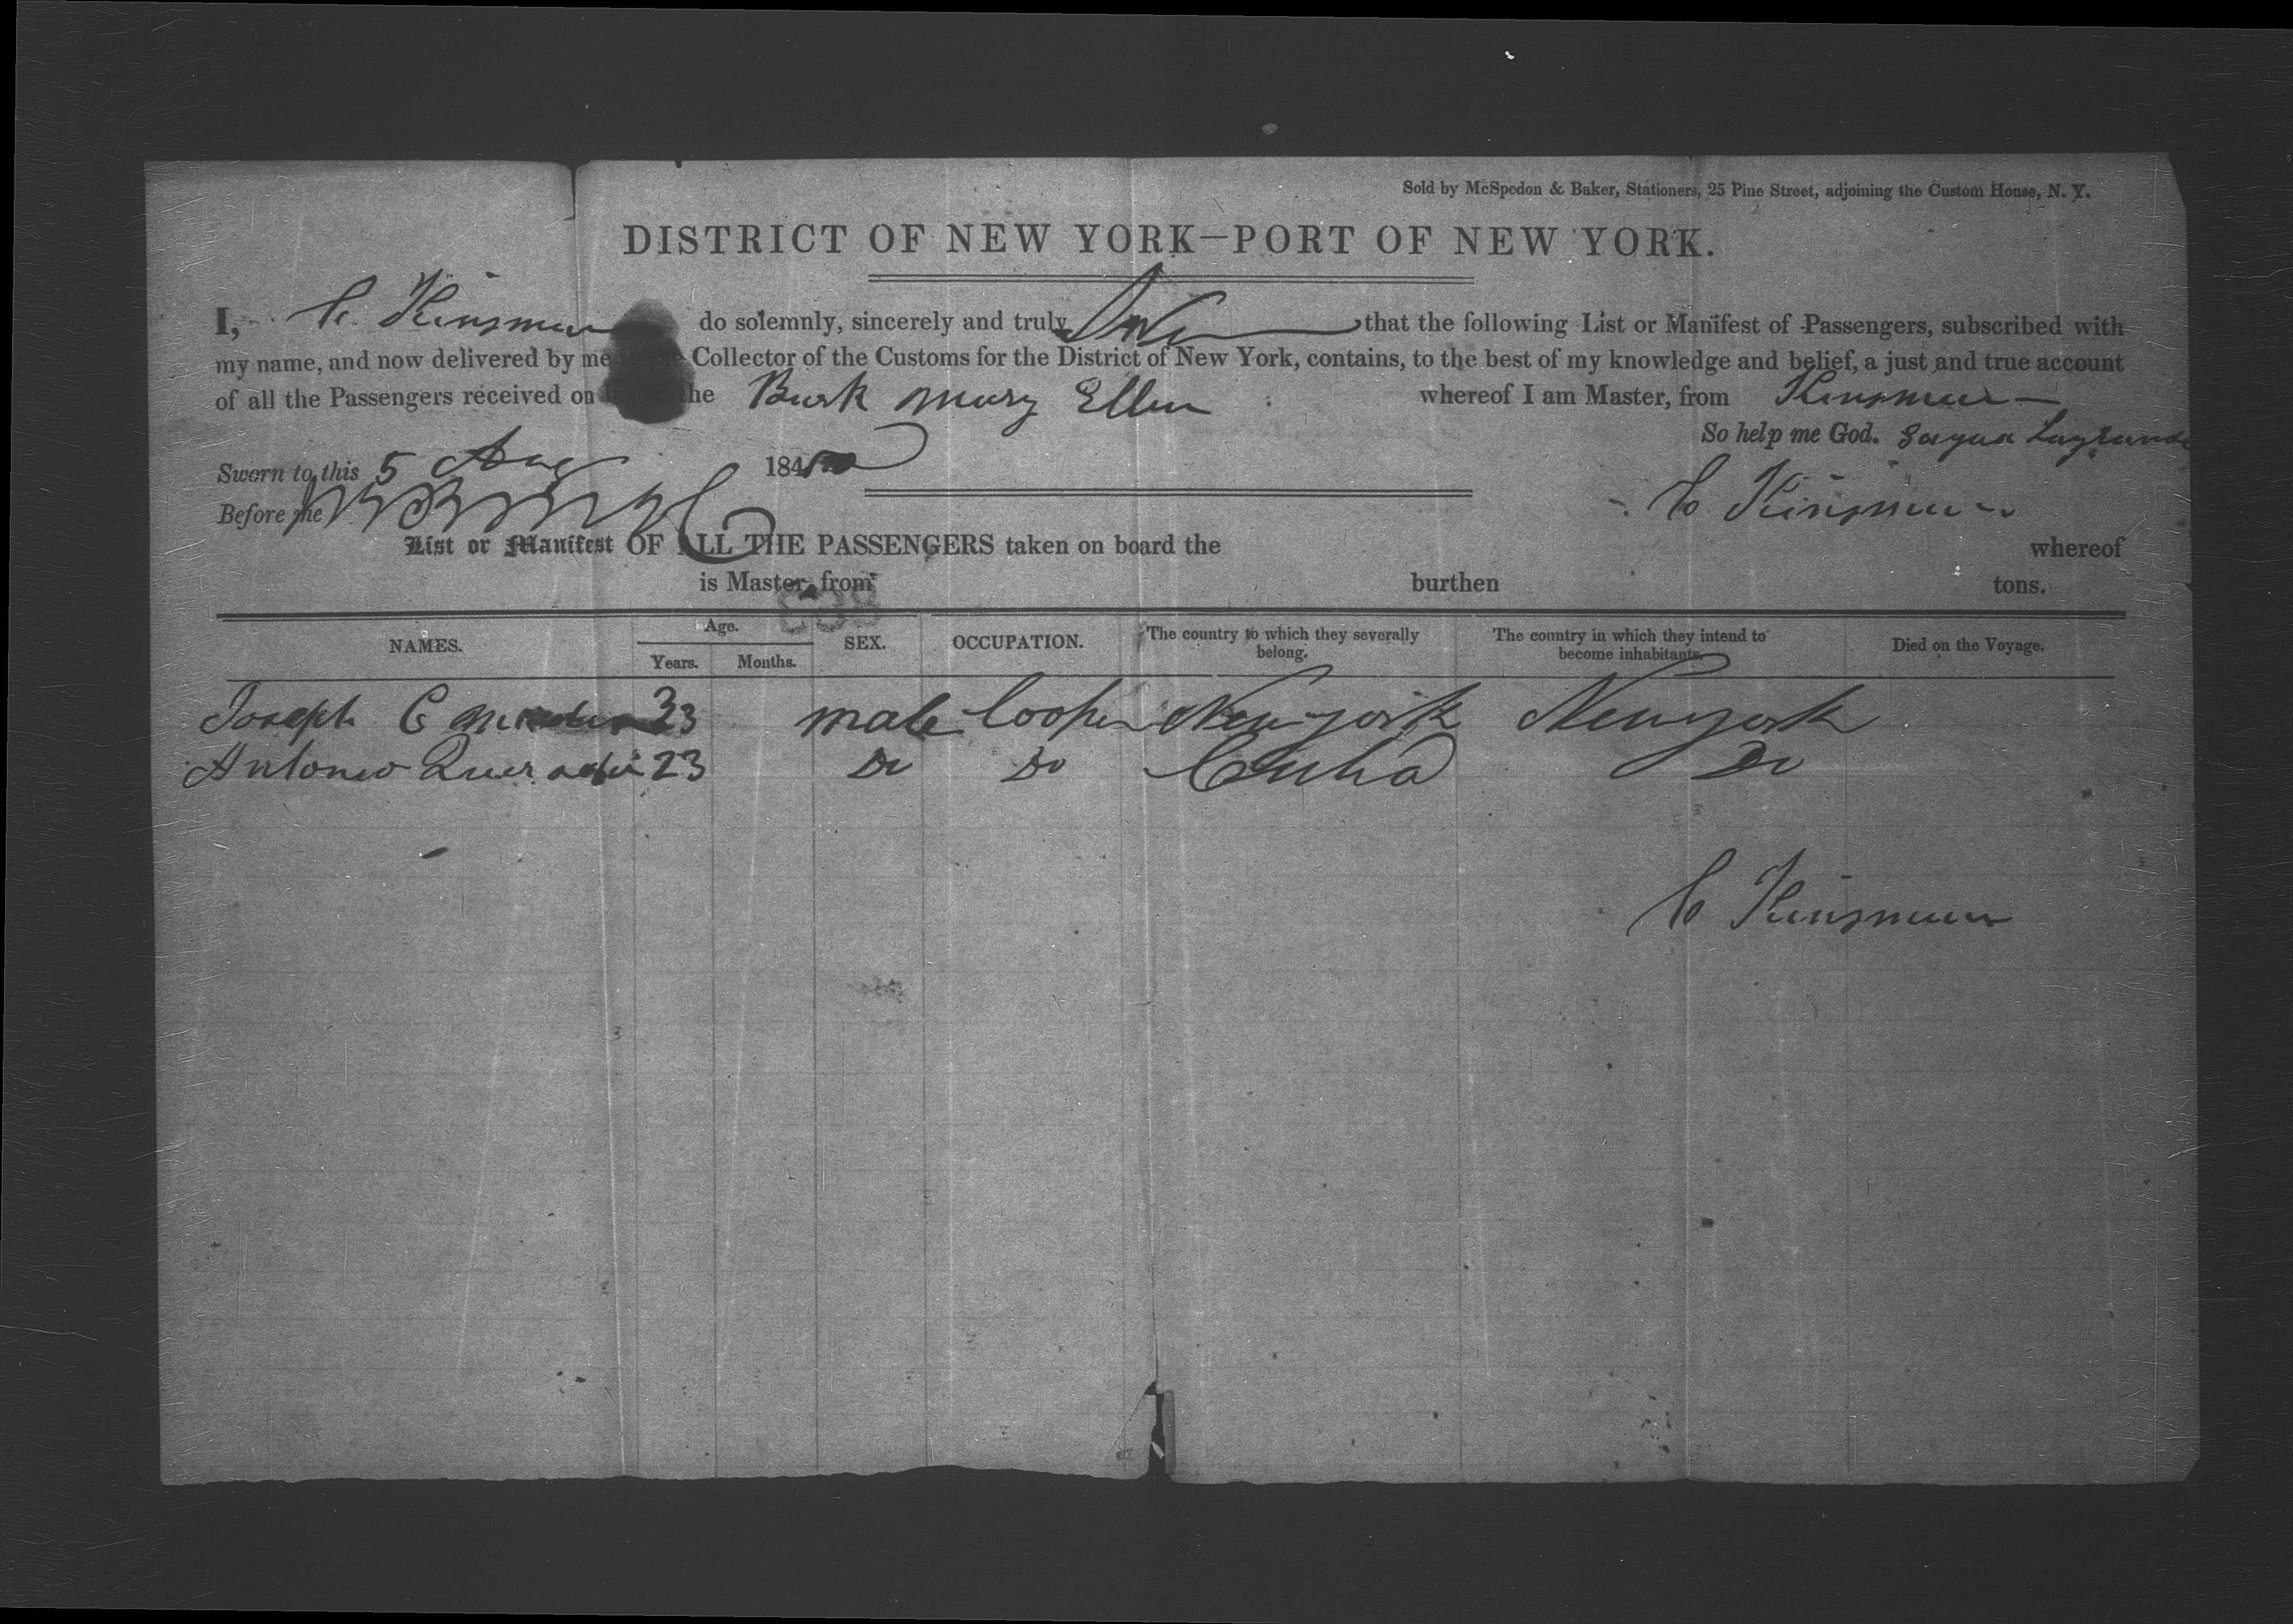 Sold by McSpedon & Baker, Stationers, 25 Pine Street, adjoining the Custom House, N. Y.
DISTRICT OF NEW YORK—PORT OF NEW YORK.
I, C Kinsman do solemnly, sincerely and truly that the following List or Manifest of Passengers, subscribed with
my name, and now delivered by me Collector of the Customs for the District of New York, contains, to the best of my knowledge and belief, a just and true account
of all the Passengers received on the Bark Mary Ellen whereof I am Master, from Kinsman
So help me God. Sagua
Sworn to this 5 Aug 184
Before me C Kinsman
List or Manifest OF ALL THE PASSENGERS taken on board the whereof
is Master, from burthen tons.
NAMES. Age. Years. Months. SEX. OCCUPATION. The country to which they severally belong. The country in which they intend to become inhabitants. Died on the Voyage.
Joseph C 33 male Cooper New york New york
Antonio 23 Do Do Cuba Do
C Kinsman